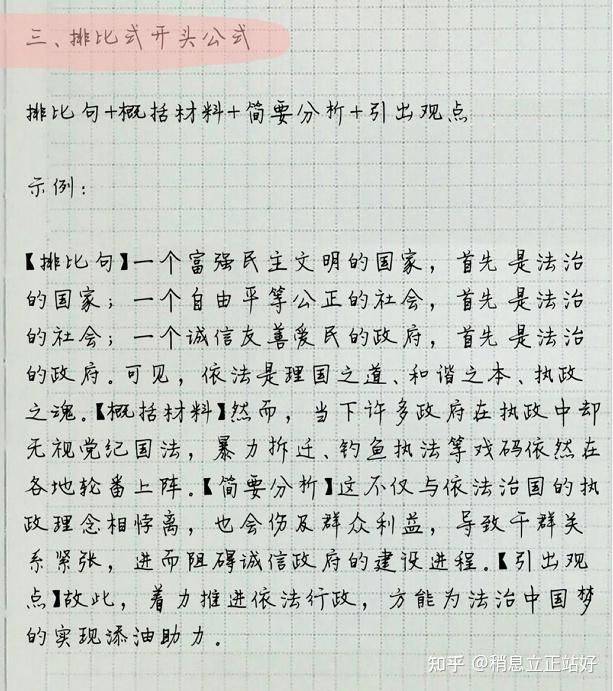 三、排比式开头公式
排比句+概括材料+简要分析+引出观点
示例：
【排比句】一个富强民主文明的国家，首先是法治
的国家；一个自由平等公正的社会，首先是法治
的社会；一个诚信友善爱民的政府，首先是法治
的政府.可见，依法是理国之道、和谐之本、执政
之魂.【概括材料】然而，当下许多政府在执政中却
无视党纪国法，暴力拆迁、钓鱼执法等戏码依然在
各地轮番上阵.【简要分析】这不仅与依法治国的执
政理念相悖离，也会伤及群众利益，导致干群关
系紧张，进而阻碍诚信政府的建设进程.【引出观
点】故此，着力推进依法行政，方能为法治中国梦
的实现添油助力.
知乎 @稍息立正站好